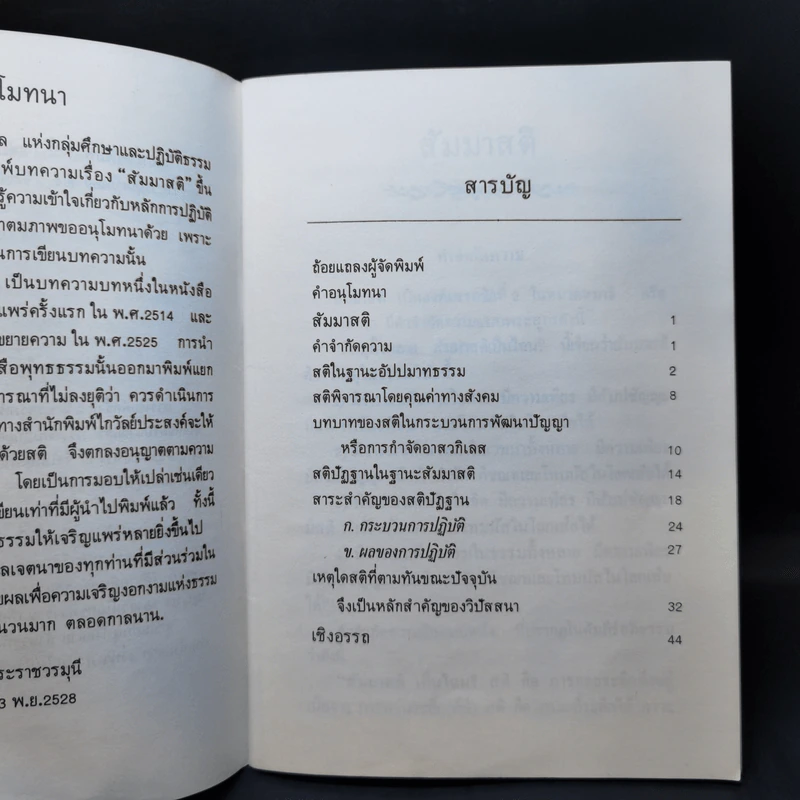 โมทนา
ล แห่งกลุ่มศึกษาและปฏิบัติธรรม
พ์บทความเรื่อง “สัมมาสติ” ขึ้น
รู้ความเข้าใจเกี่ยวกับหลักการปฏิบัติ
าตมภาพขออนุโมทนาด้วย เพราะ
นการเขียนบทความนั้น
เป็นบทความบทหนึ่งในหนังสือ
แพร่ครั้งแรก ใน พ.ศ.2514 และ
ขยายความ ใน พ.ศ.2525 การนำ
สือพุทธธรรมนั้นออกมาพิมพ์แยก
ารณาที่ไม่ลงยุติว่า ควรดำเนินการ
ทางสำนักพิมพ์ไกวัลย์ประสงค์จะให้
ด้วยสติ จึงตกลงอนุญาตตามความ
โดยเป็นการมอบให้เปล่าเช่นเดียว
เขียนเท่าที่มีผู้นำไปพิมพ์แล้ว ทั้งนี้
ธรรมให้เจริญแพร่หลายยิ่งขึ้นไป
ลเจตนาของทุกท่านที่มีส่วนร่วมใน
ยผลเพื่อความเจริญงอกงามแห่งธรรม
นวนมาก ตลอดกาลนาน.
ระราชวรมุนี
3 พ.ย.2528
สารบัญ
ถ้อยแถลงผู้จัดพิมพ์
คำอนุโมทนา
สัมมาสติ 1
คำจำกัดความ 1
สติในฐานะอัปปมาทธรรม 2
สติพิจารณาโดยคุณค่าทางสังคม 8
บทบาทของสติในกระบวนการพัฒนาปัญญา
หรือการกำจัดอาสวกิเลส 10
สติปัฏฐานในฐานะสัมมาสติ 14
สาระสำคัญของสติปัฏฐาน 18
ก. กระบวนการปฏิบัติ 24
ข. ผลของการปฏิบัติ 27
เหตุใดสติที่ตามทันขณะปัจจุบัน
จึงเป็นหลักสำคัญของวิปัสสนา 32
เชิงอรรถ 44